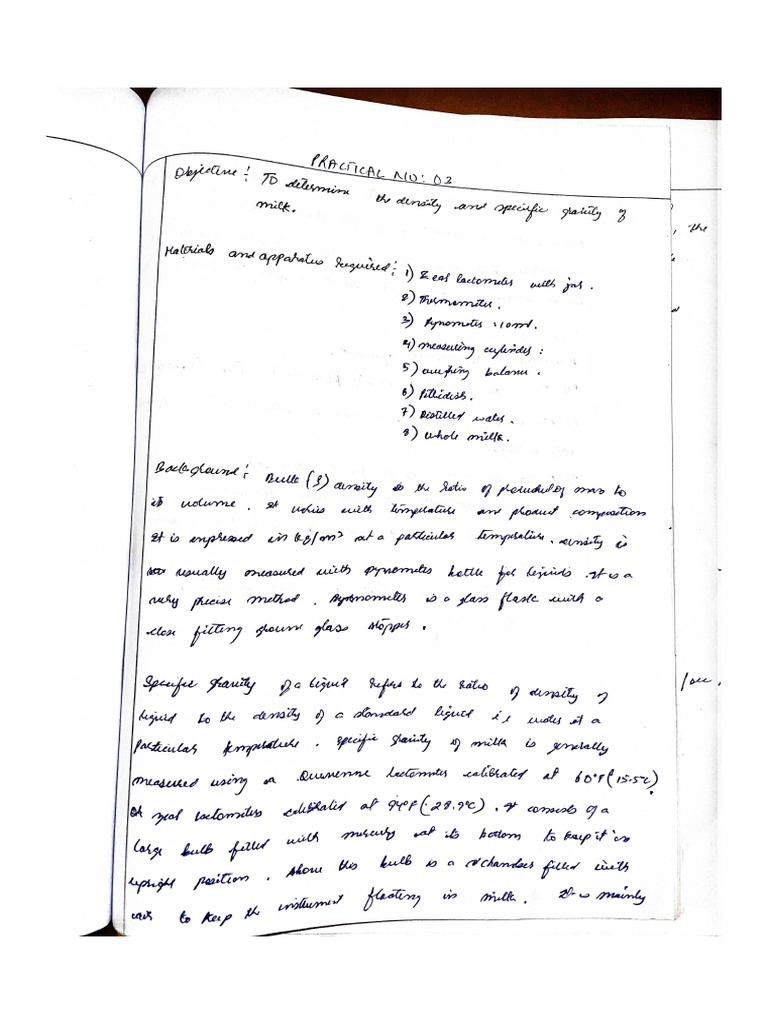 PRACTICAL NO: 02
Objective: To determine the density and specific gravity of
milk.
Materials and apparatus required: 1) Zeal lactometer with jar.
2) Thermometer.
3) Pynometer :10ml.
4) measuring cylinder:
5) balance.
6) Petridish.
7) Distilled water.
8) whole milk.
Background: Bulk (ρ) density is the ratio of product of mass to
its volume. It varies with temperature and product composition
It is expressed in kg/m³ at a particular temperature. Density is
usually measured with pynometer bottle for liquids. It is a
very precise method. Pynometer is a glass flask with a
close fitting ground glass stopper.
Specific gravity of a liquid refers to the ratio of density of
liquid to the density of a standard liquid i.e water at a
particular temperature. Specific gravity of milk is generally
measured using a Quevenne lactometer calibrated at 60°F (15.5°C)
or zeal lactometer calibrated at . It consists of a
large bulb filled with mercury at its bottom to keep it in
upright position. Above this bulb is a chamber filled with
to keep the instrument floating in milk. It is mainly
, the
/cc.